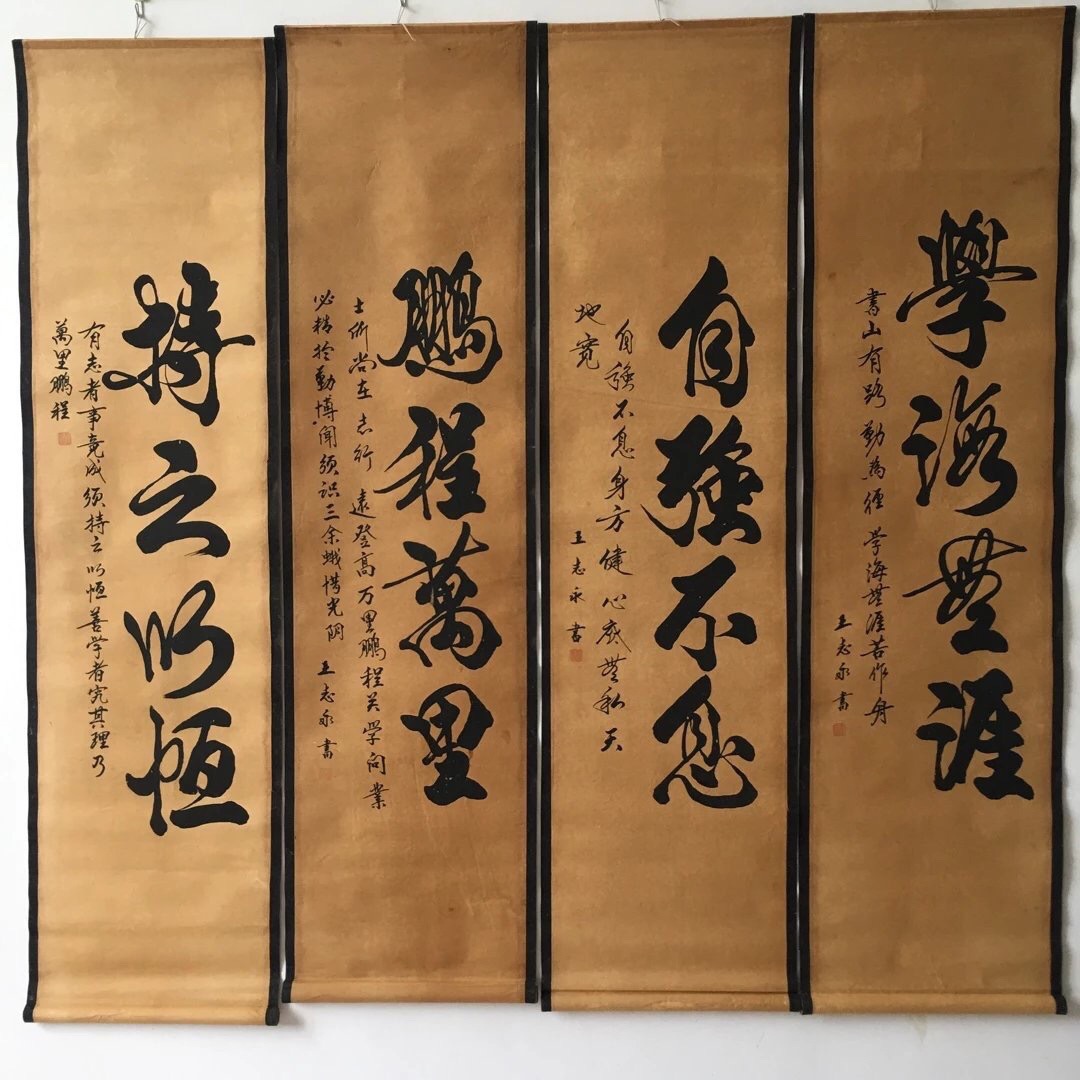 學海無涯
書山有路勤為徑学海無涯苦作舟
王志永書
自強不息
自強不息身方健心底無私天
地寬
王志永書
鵬程萬里
士所尚在志行遠登高万里鵬程关学问業
必精於勤博闻须识三余蛾惜光阴
王志永書
持之以恒
有志者事竟成须持之以恒善学者究其理乃
萬里鵬程